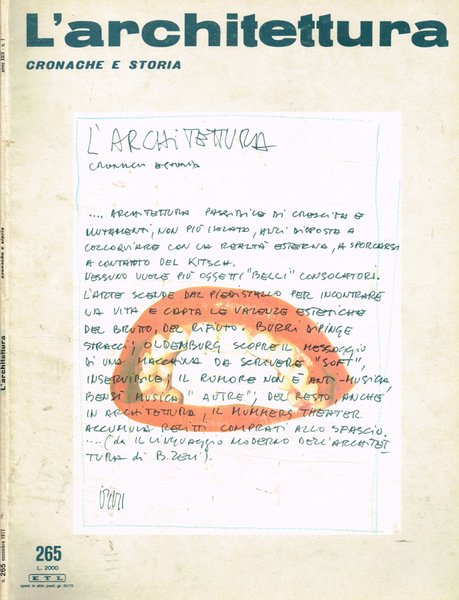 L'architettura
CRONACHE E STORIA
L'ARCHITETTURA
CRONACHE E STORIA
.... ARCHITETTURA PASSIBILE DI CRESCITA E
MUTAMENTI, NON PIÙ ISOLATO, ANZI DISPOSTA A
COLLOQUIARE CON LA REALTÀ ESTERNA, A SPORCARSI
A CONTATTO DEL KITSCH.
NESSUNO VUOLE PIÙ OGGETTI "BELLI" CONSOLATORI.
L'ARTE SCENDE DAL PIEDISTALLO PER INCONTRARE
LA VITA E CAPTA LE VALENZE ESTETICHE
DEL BRUTTO, DEL RIFIUTO. BURRI DIPINGE
STRACCI; OLDENBURG SCOPRE IL MESSAGGIO
DI UNA MACCHINA DA SCRIVERE "SOFT",
INSERVIBILE. IL RUMORE NON È ANTI-MUSICA
BENSÌ MUSICA "AUTRE"; DEL RESTO, ANCHE
IN ARCHITETTURA, IL MUMMERS THEATER
ACCUMULA RELITTI COMPRATI ALLO SFASCIO.
.... (da IL LINGUAGGIO MODERNO DELL'ARCHITET-
TURA di B. ZEVI).
265
L. 2000
ETL
sped. in abb. post. gr. III/70
n. 265 novembre 1977
L'architettura
cronache e storia
anno XXIII - n. 7